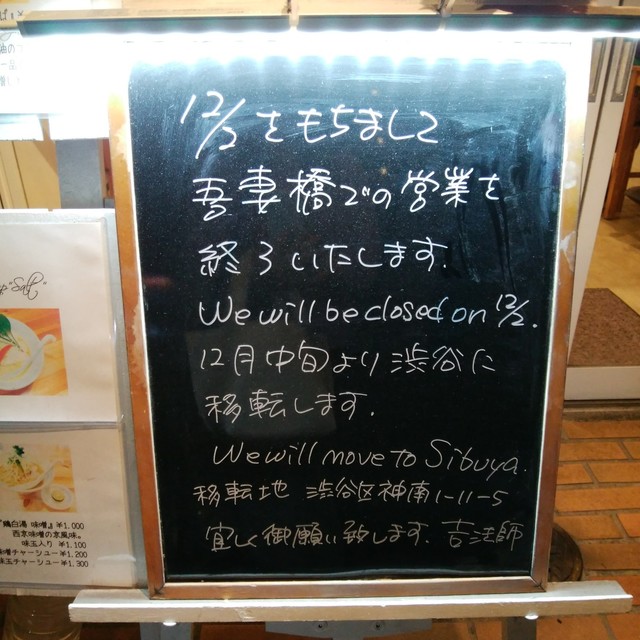 12/2をもちまして
吾妻橋での営業を
終了いたします.
We will be closed on 12/2.
12月中旬より渋谷に
移転します.
We will move to Sibuya.
移転地 渋谷区神南1-11-5
宜しく御願い致します. 吉法師
"Salt"
『鶏白湯 味噌』¥1.000
西京味噌の京風味。
味玉入り ¥1.100
味噌チャーシュー¥1.200
味玉チャーシュー¥1.300